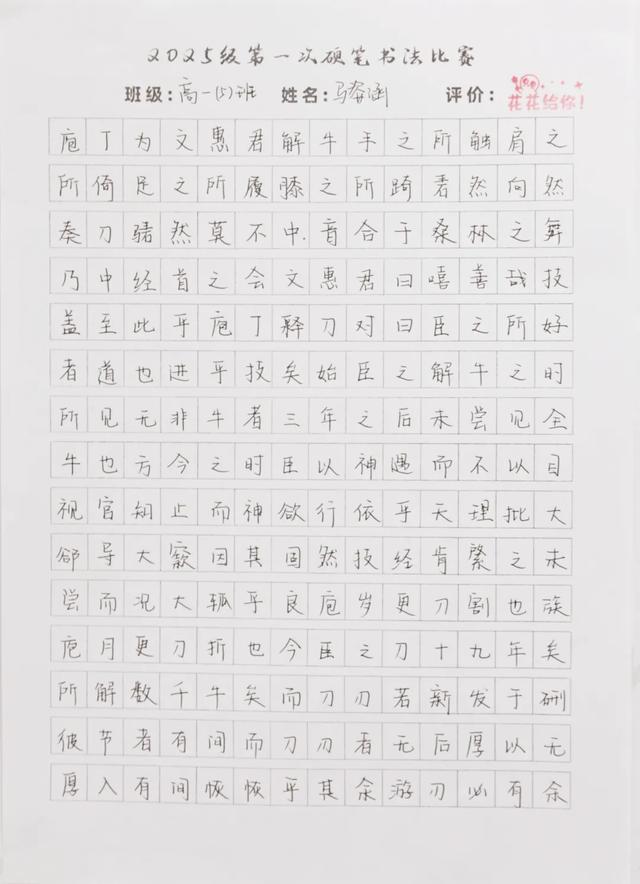 2025级第一次硬笔书法比赛
班级：高一(5)班 姓名：马 涵 评价：花花给你！
庖丁为文惠君解牛手之所触肩之
所倚足之所履膝之所踦砉然向然
奏刀騞然莫不中.音合于桑林之舞
乃中经首之会文惠君曰嘻善哉技
盖至此乎庖丁释刀对曰臣之所好
者道也进乎技矣始臣之解牛之时
所见无非牛者三年之后未尝见全
牛也方今之时臣以神遇而不以目
视官知止而神欲行依乎天理批大
郤导大窾因其固然技经肯綮之未
尝而况大軱乎良庖岁更刀割也族
庖月更刀折也今臣之刀十九年矣
所解数千牛矣而刀刃若新发于硎
彼节者有间而刀刃者无后厚以无
厚入有间恢恢乎其余游刃必有余